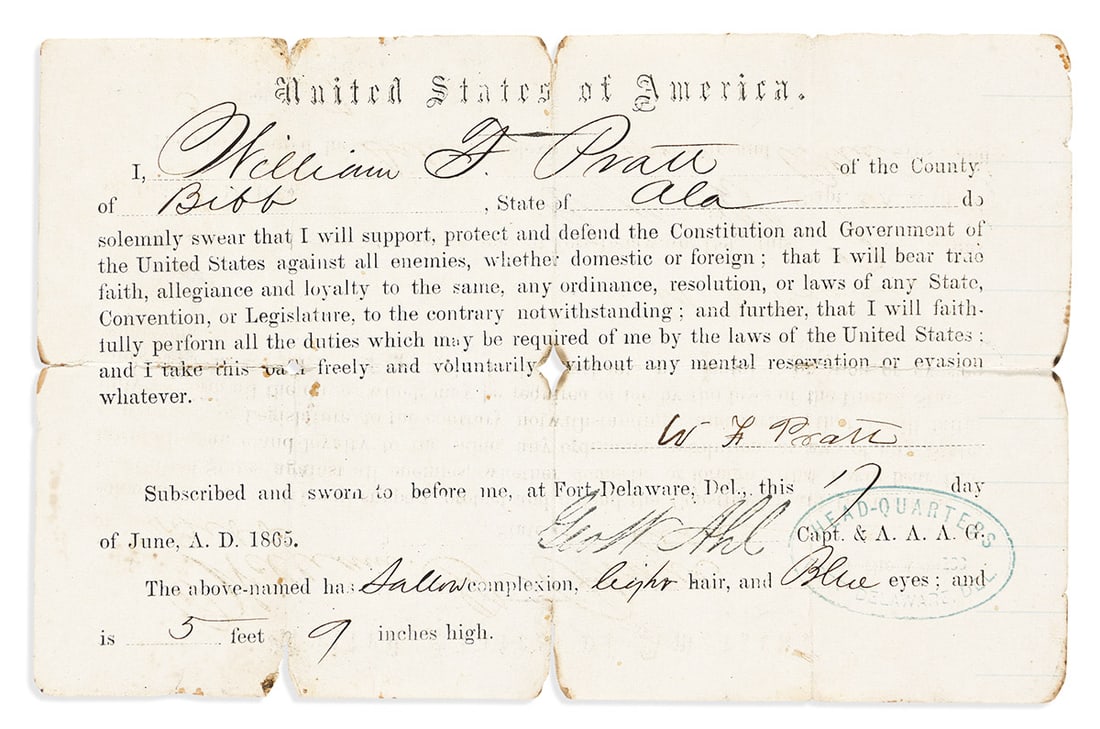 United States of America.
I, William F. Pratt of the County
of Bibb, State of Ala do
solemnly swear that I will support, protect and defend the Constitution and Government of
the United States against all enemies, whether domestic or foreign; that I will bear true
faith, allegiance and loyalty to the same, any ordinance, resolution, or laws of any State,
Convention, or Legislature, to the contrary notwithstanding; and further, that I will faith-
fully perform all the duties which may be required of me by the laws of the United States;
and I take this oath freely and voluntarily, without any mental reservation or evasion
whatever.
W F Pratt
Subscribed and sworn to before me, at Fort Delaware, Del., this 17 day
of June, A. D. 1865. Geo W Ahl Capt. & A. A. A. G.
HEAD-QUARTERS
DELAWARE DEL
The above-named has Sallow complexion, light hair, and Blue eyes; and
is 5 feet 9 inches high.